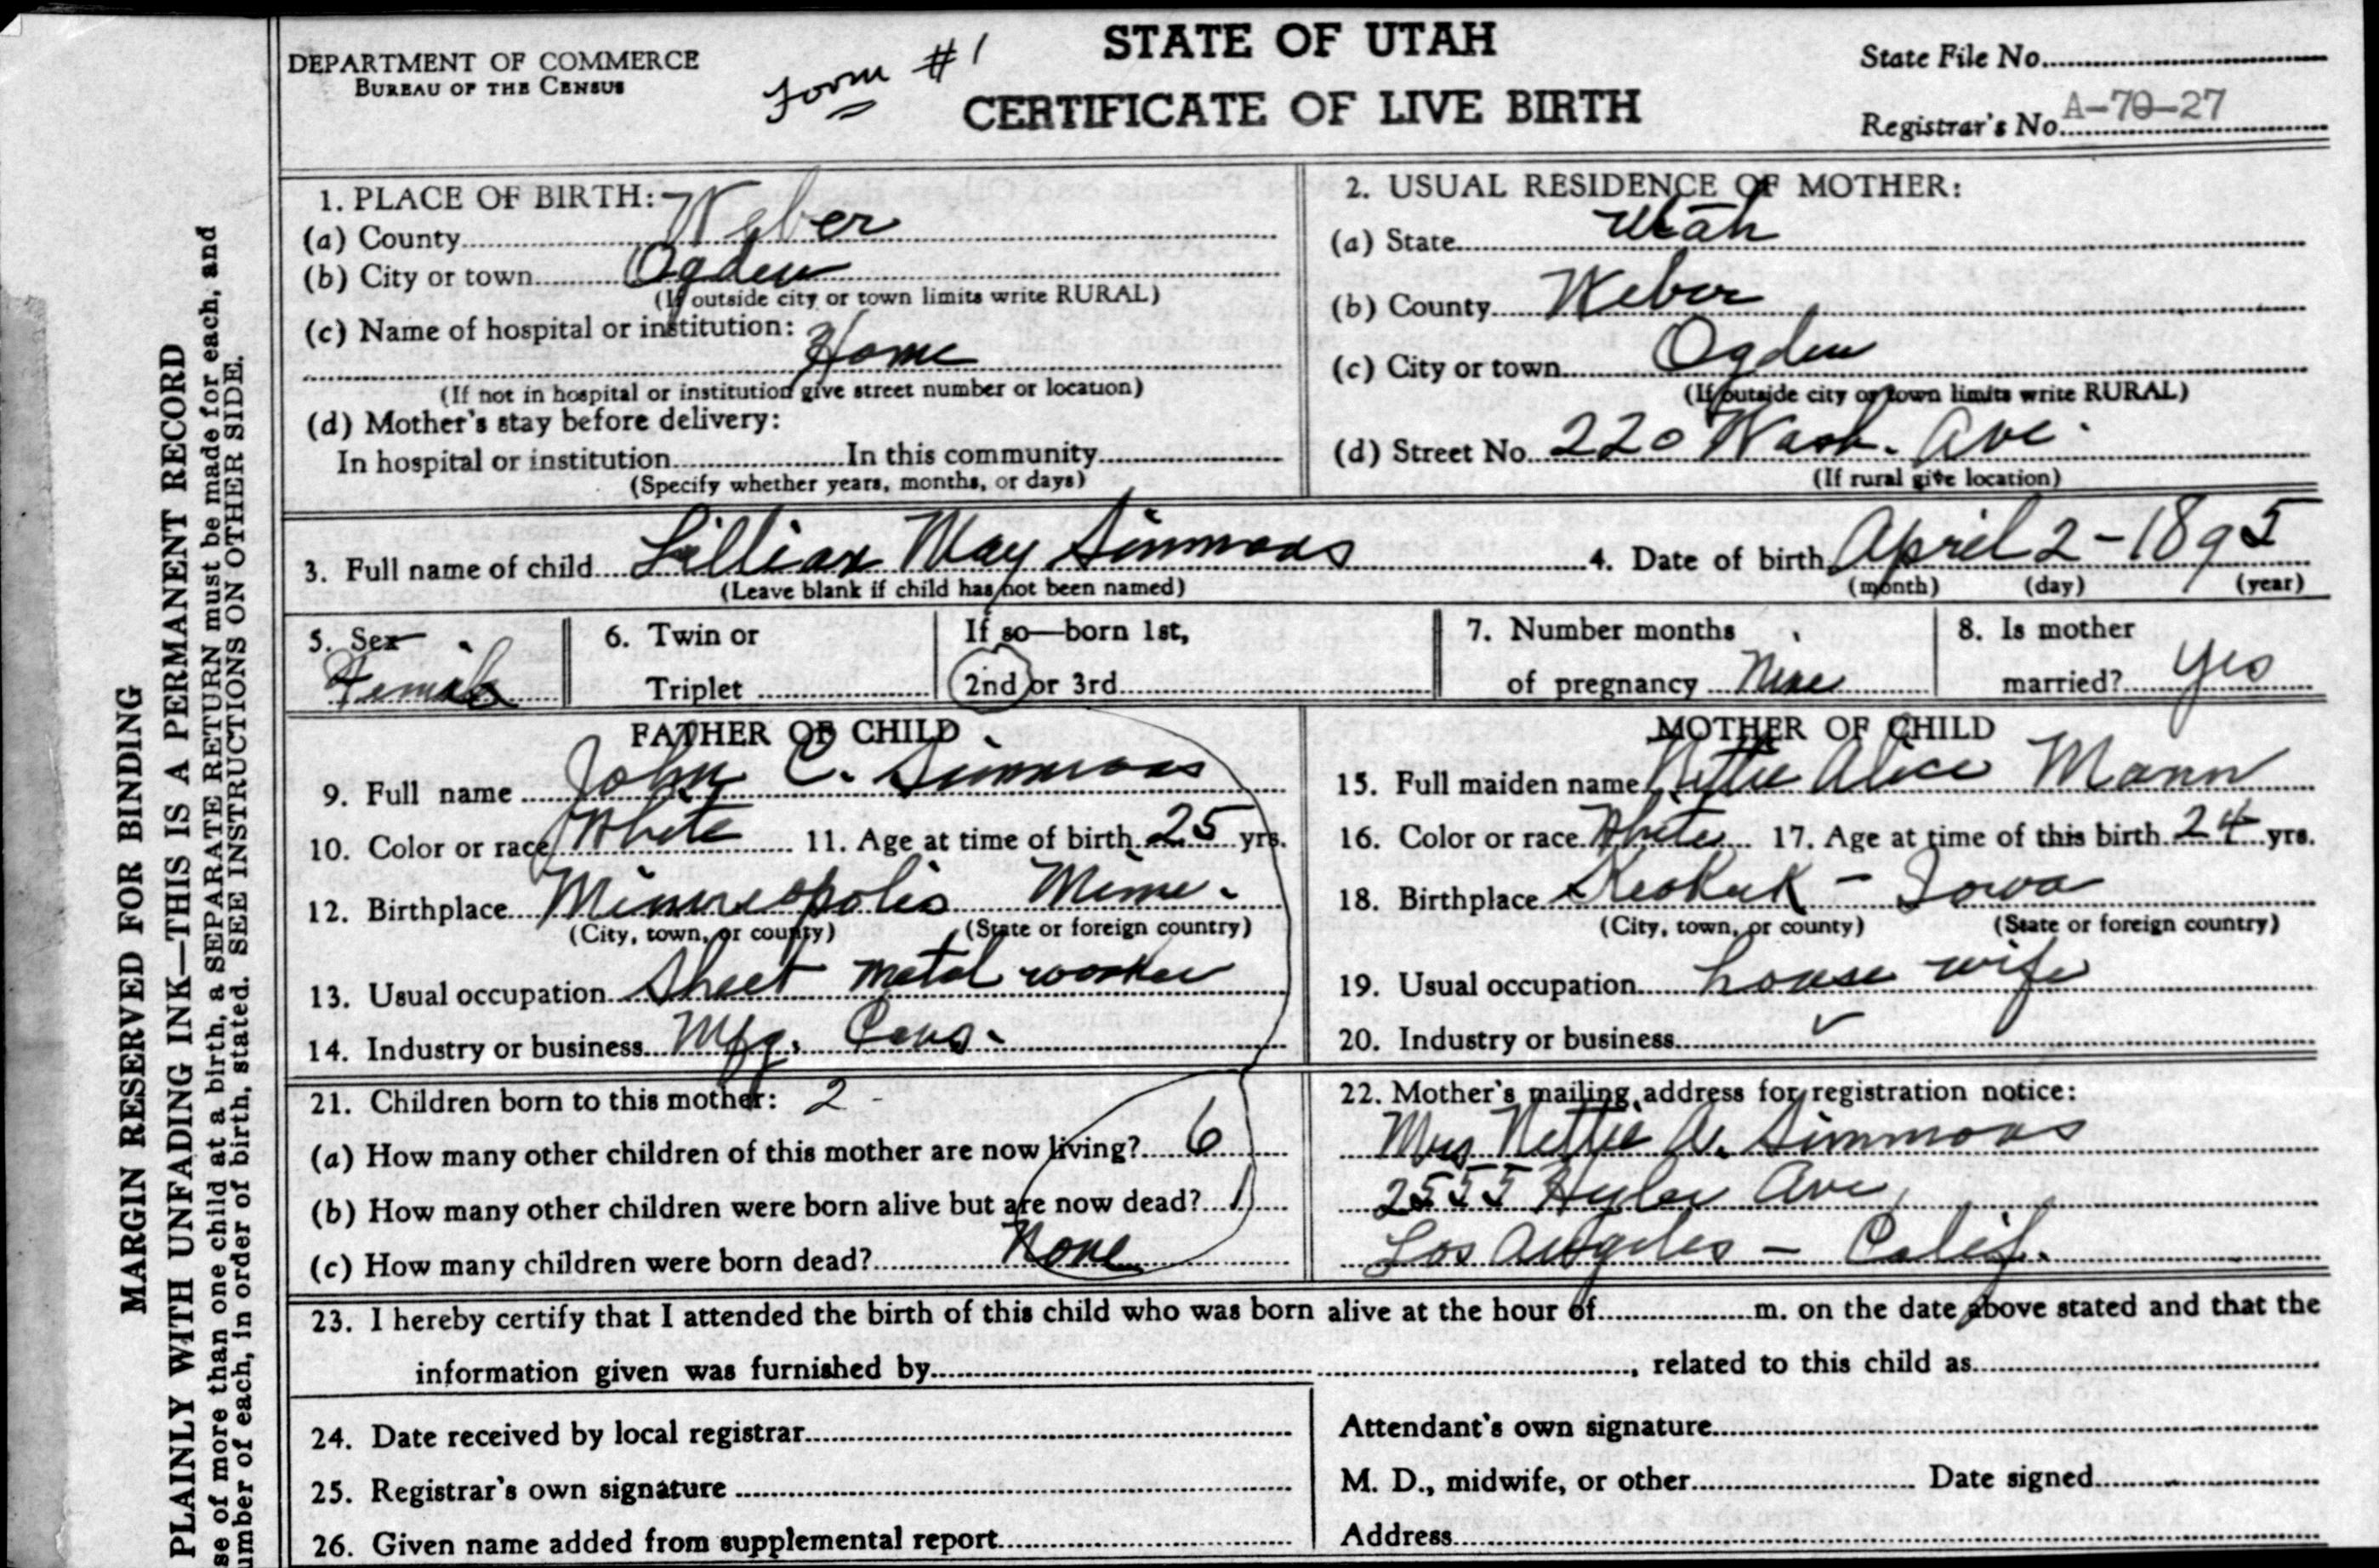 DEPARTMENT OF COMMERCE
BUREAU OF THE CENSUS
Form #1
STATE OF UTAH
CERTIFICATE OF LIVE BIRTH
State File No.
Registrar's No. A-70-27
MARGIN RESERVED FOR BINDING
PLAINLY WITH UNFADING INK—THIS IS A PERMANENT RECORD
se of more than one child at a birth, a SEPARATE RETURN must be made for each, and
umber of each, in order of birth, stated. SEE INSTRUCTIONS ON OTHER SIDE.
1. PLACE OF BIRTH:
(a) County Weber
(b) City or town Ogden
(If outside city or town limits write RURAL)
(c) Name of hospital or institution:
Home
(If not in hospital or institution give street number or location)
(d) Mother's stay before delivery:
In hospital or institution In this community
(Specify whether years, months, or days)
2. USUAL RESIDENCE OF MOTHER:
(a) State Utah
(b) County Weber
(c) City or town Ogden
(If outside city or town limits write RURAL)
(d) Street No. 220 Wash. Ave.
(If rural give location)
3. Full name of child Lillian May Simmons 4. Date of birth April 2-1895
(Leave blank if child has not been named) (month) (day) (year)
5. Sex Female
6. Twin or
Triplet
If so—born 1st,
2nd or 3rd
7. Number months
of pregnancy Nine
8. Is mother
married? yes
FATHER OF CHILD
9. Full name John C. Simmons
10. Color or race White 11. Age at time of birth 25 yrs.
12. Birthplace Minneapolis Minn.
(City, town, or county) (State or foreign country)
13. Usual occupation Sheet metal worker
14. Industry or business Mfg.
MOTHER OF CHILD
15. Full maiden name Nettie Alice Mann
16. Color or race White 17. Age at time of this birth 24 yrs.
18. Birthplace Keokuk - Iowa
(City, town, or county) (State or foreign country)
19. Usual occupation house wife
20. Industry or business
21. Children born to this mother: 2 -
(a) How many other children of this mother are now living? 6
(b) How many other children were born alive but are now dead? 1
(c) How many children were born dead? None
22. Mother's mailing address for registration notice:
Mrs Nettie A. Simmons
2555 Ave,
Los Angeles - Calif.
23. I hereby certify that I attended the birth of this child who was born alive at the hour of m. on the date above stated and that the
information given was furnished by , related to this child as
24. Date received by local registrar
25. Registrar's own signature
26. Given name added from supplemental report
Attendant's own signature
M. D., midwife, or other Date signed
Address